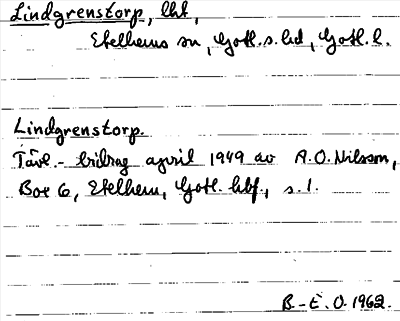 Lindgrenstorp, lht,
Etelhems sn, Gotl. s. hd, Gotl. l.
Lindgrenstorp.
Tävl.- bidrag april 1949 av A.O. Nilsson,
Box 6, Etelhem, Gotl. hbf, s. 1.
B-E. O. 1962.